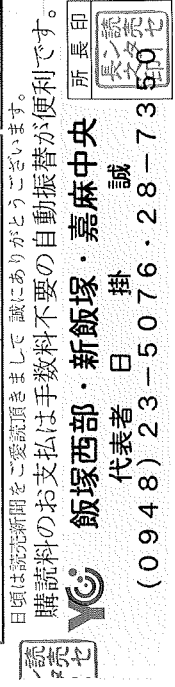 日頃は読売新聞をご愛読頂きまして 誠にありがとうございます。
購読料のお支払は手数料不要の自動振替が便利です。
YC 飯塚西部・新飯塚・嘉麻中央
代表者 日掛 誠
(0948)23-5076・28-7350
所長印